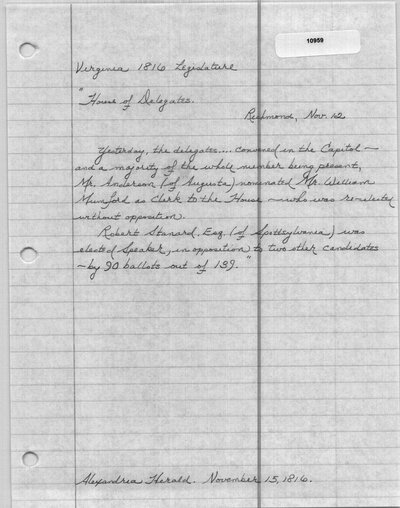 10959
Virginia 1816 Legislature
"House of Delegates.
Richmond, Nov. 12.
Yesterday, the delegates.... convened in the Capitol —
and a majority of the whole number being present,
Mr. Anderson (of Augusta) nominated Mr. William
Munford as Clerk to the House — who was re-elected
without opposition.
Robert Stanard, Esq. (of Spottsylvania) was
elected Speaker, in opposition to two other candidates
— by 90 ballots out of 139. "
Alexandria Herald. November 15, 1816.